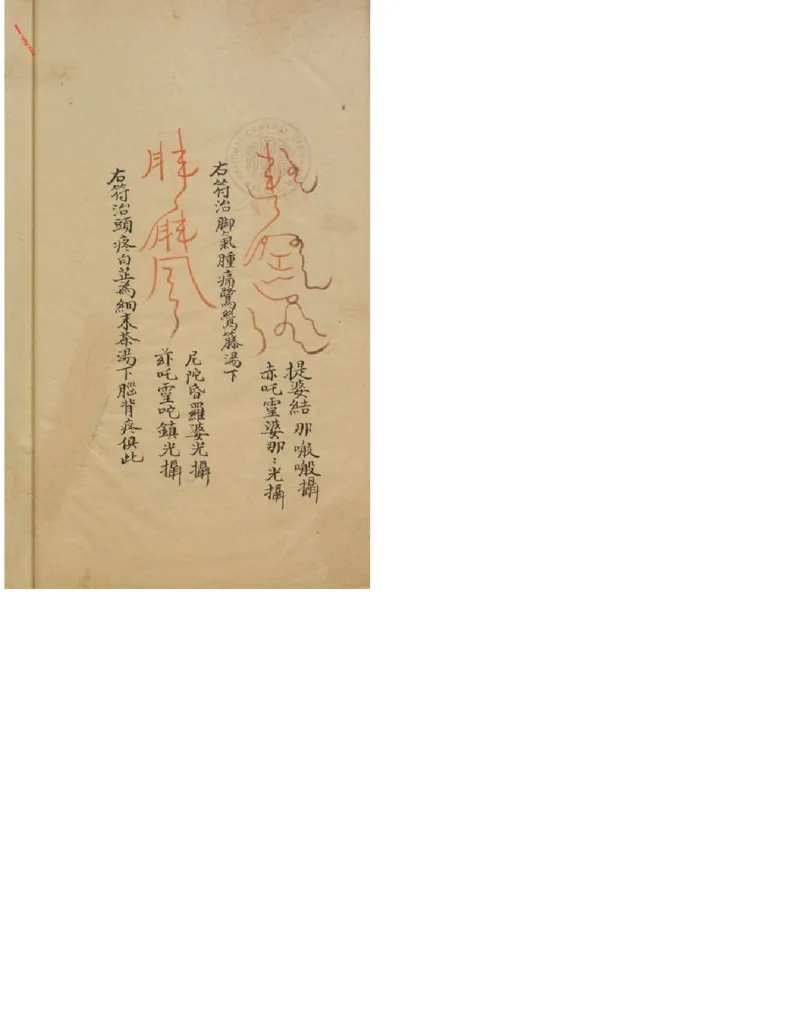 提婆結那㗨㗨攝
赤吒霊婆那:光攝
右符治脚氣腫痛鷺鷥籐湯下
尼陀昏羅婆光攝
吒霊咜鎮光攝
右符治頭疼白芷為細末茶湯下腦背疼俱此